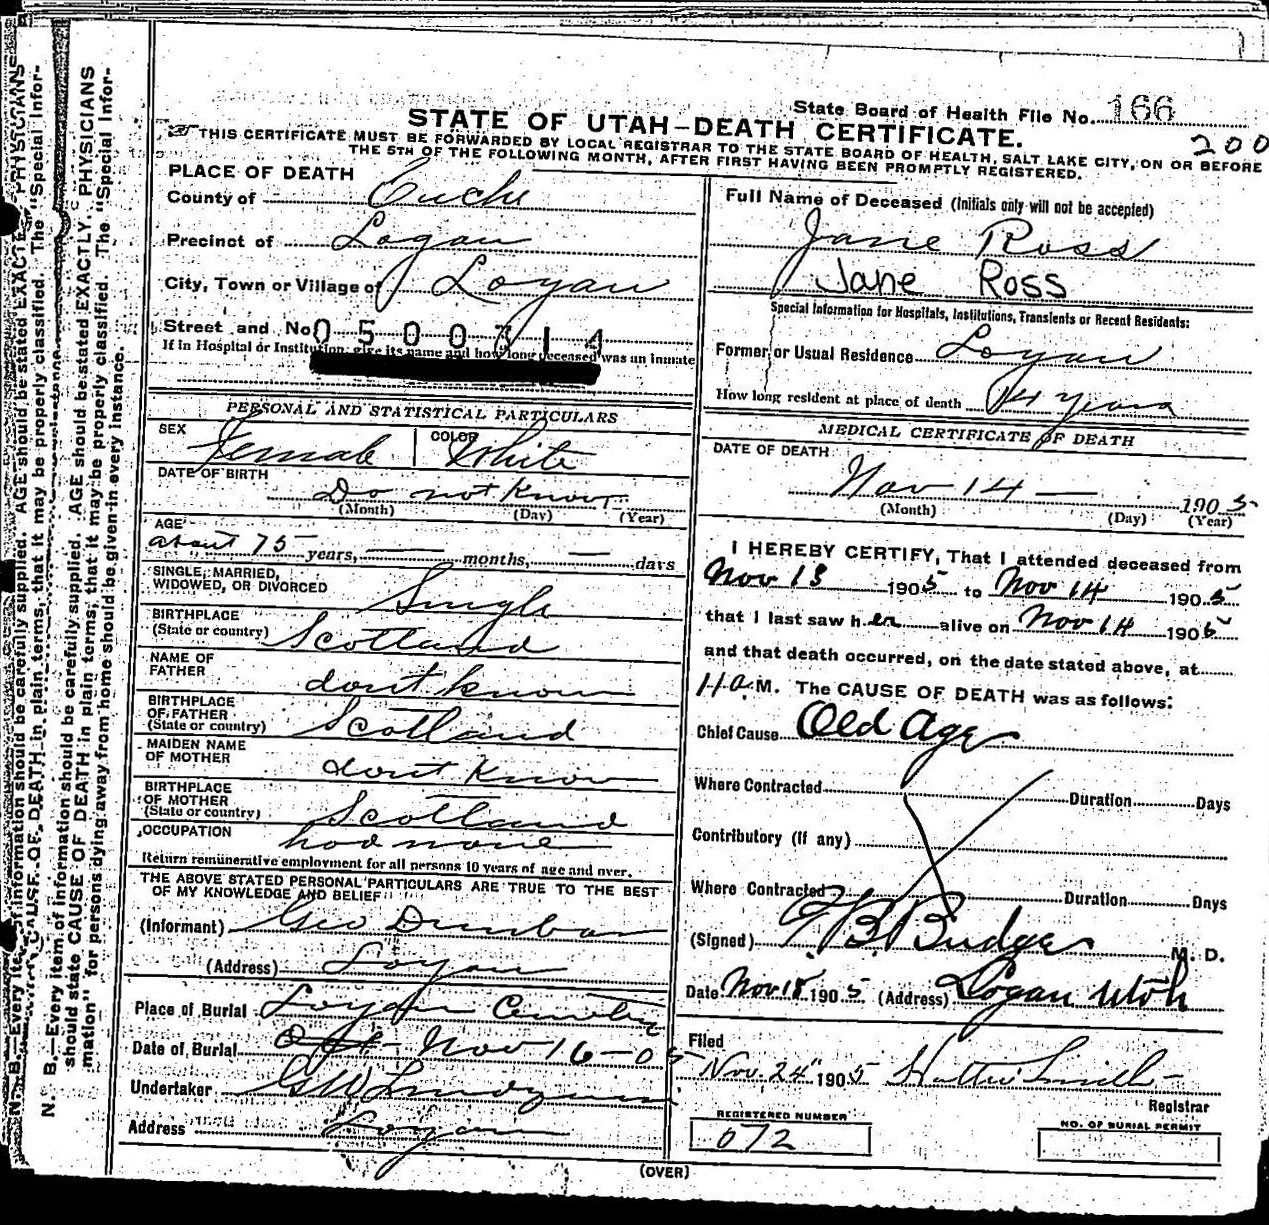 State Board of Health File No. 166
200
STATE OF UTAH—DEATH CERTIFICATE.
THIS CERTIFICATE MUST BE FORWARDED BY LOCAL REGISTRAR TO THE STATE BOARD OF HEALTH, SALT LAKE CITY, ON OR BEFORE
THE 5TH OF THE FOLLOWING MONTH, AFTER FIRST HAVING BEEN PROMPTLY REGISTERED.
PLACE OF DEATH
County of Cache
Precinct of Logan
City, Town or Village of Logan
Street and No. 0500314
If in Hospital or Institution, give its name and how long deceased was an inmate
PERSONAL AND STATISTICAL PARTICULARS
SEX Female COLOR White
DATE OF BIRTH
Do not Know
(Month) (Day) (Year)
AGE
about 75 years, — months, — days
SINGLE, MARRIED,
WIDOWED, OR DIVORCED Single
BIRTHPLACE
(State or country) Scotland
NAME OF
FATHER dont know
BIRTHPLACE
OF FATHER
(State or country) Scotland
MAIDEN NAME
OF MOTHER dont Know
BIRTHPLACE
OF MOTHER
(State or country) Scotland
OCCUPATION had none
Return remunerative employment for all persons 10 years of age and over.
THE ABOVE STATED PERSONAL PARTICULARS ARE TRUE TO THE BEST
OF MY KNOWLEDGE AND BELIEF
(Informant) Geo Dunbar
(Address) Logan
Place of Burial Logan Cemetery
Date of Burial Nov 16-05
Undertaker G W
Address Logan
Full Name of Deceased (Initials only will not be accepted)
Jane Ross
Jane Ross
Special Information for Hospitals, Institutions, Transients or Recent Residents:
Former or Usual Residence Logan
How long resident at place of death 14 years
MEDICAL CERTIFICATE OF DEATH
DATE OF DEATH
Nov 14 — 1905
(Month) (Day) (Year)
I HEREBY CERTIFY, That I attended deceased from
Nov 13 1905 to Nov 14 1905
that I last saw her alive on Nov 14 1905
and that death occurred, on the date stated above, at
11 a.M. The CAUSE OF DEATH was as follows:
Chief Cause Old Age
Where Contracted Duration Days
Contributory (if any)
Where Contracted Duration Days
(Signed) Budge M. D.
Date Nov 15 1905 (Address) Logan Utah
Filed
Nov. 24 1905 Hattie Smith
Registrar
REGISTERED NUMBER
072
NO. OF BURIAL PERMIT
(OVER)
N. B.—Every item of information should be carefully supplied. AGE should be stated EXACTLY. PHYSICIANS
should state CAUSE OF DEATH in plain terms, that it may be properly classified. The "Special Infor-
mation" for persons dying away from home should be given in every instance.